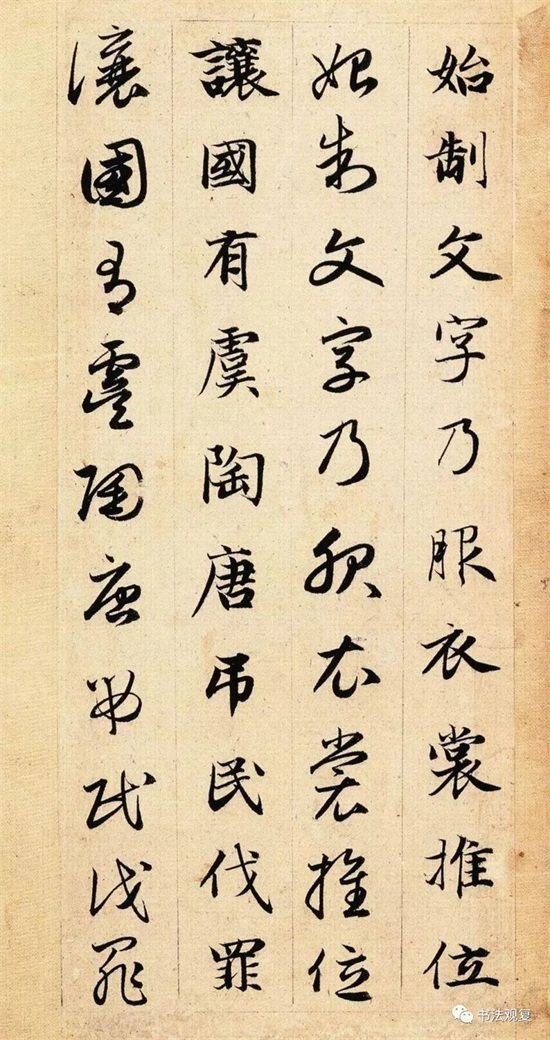 始制文字乃服衣裳推位
始制文字乃服衣裳推位
讓國有虞陶唐吊民伐罪
讓國有虞陶唐吊民伐罪
书法观复